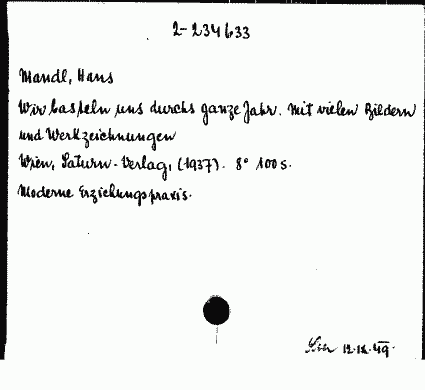 2-234633
Mandl, Hans
Wir basteln uns durchs ganze Jahr. Mit vielen Bildern
und Werkzeichnungen
Wien, Saturn-Verlag, (1937). 8° 100 S.
Moderne Erziehungspraxis.
12.12.49.